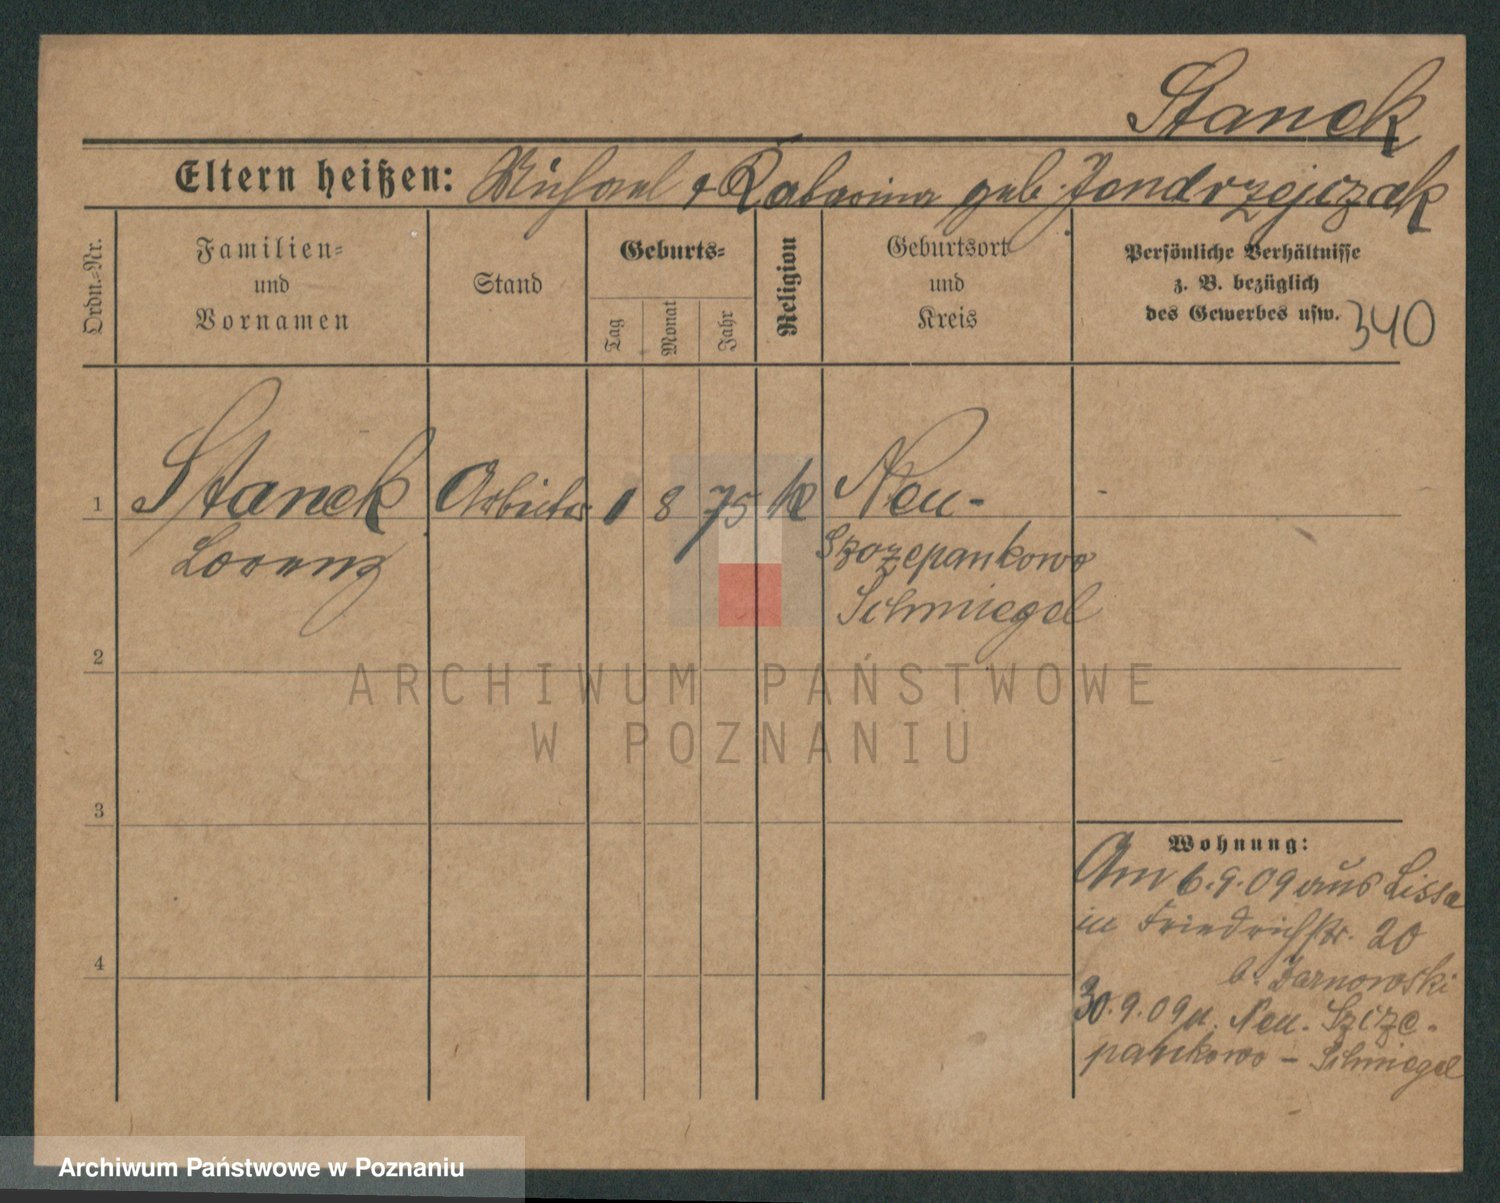 Stanek
Eltern heißen: Michael & Katharina geb. Jendrzejczak
Ordn.-Nr.
Familien-
und
Vornamen
Stand
Geburts-
Tag
Monat
Jahr
Religion
Geburtsort
und
Kreis
Persönliche Verhältnisse
z. B. bezüglich
des Gewerbes usw.
340
1 Stanek Arbeiter 1 8 75 k Neu-
Lorenz Szczepankowo
Schmiegel
2
ARCHIWUM PAŃSTWOWE
W POZNANIU
3
Wohnung:
Am 6.9.09 aus Lissa
in Friedrichstr. 20
b. Jarnowski
4
30.9.09 n. Neu-Szcze-
pankowo - Schmiegel
Archiwum Państwowe w Poznaniu